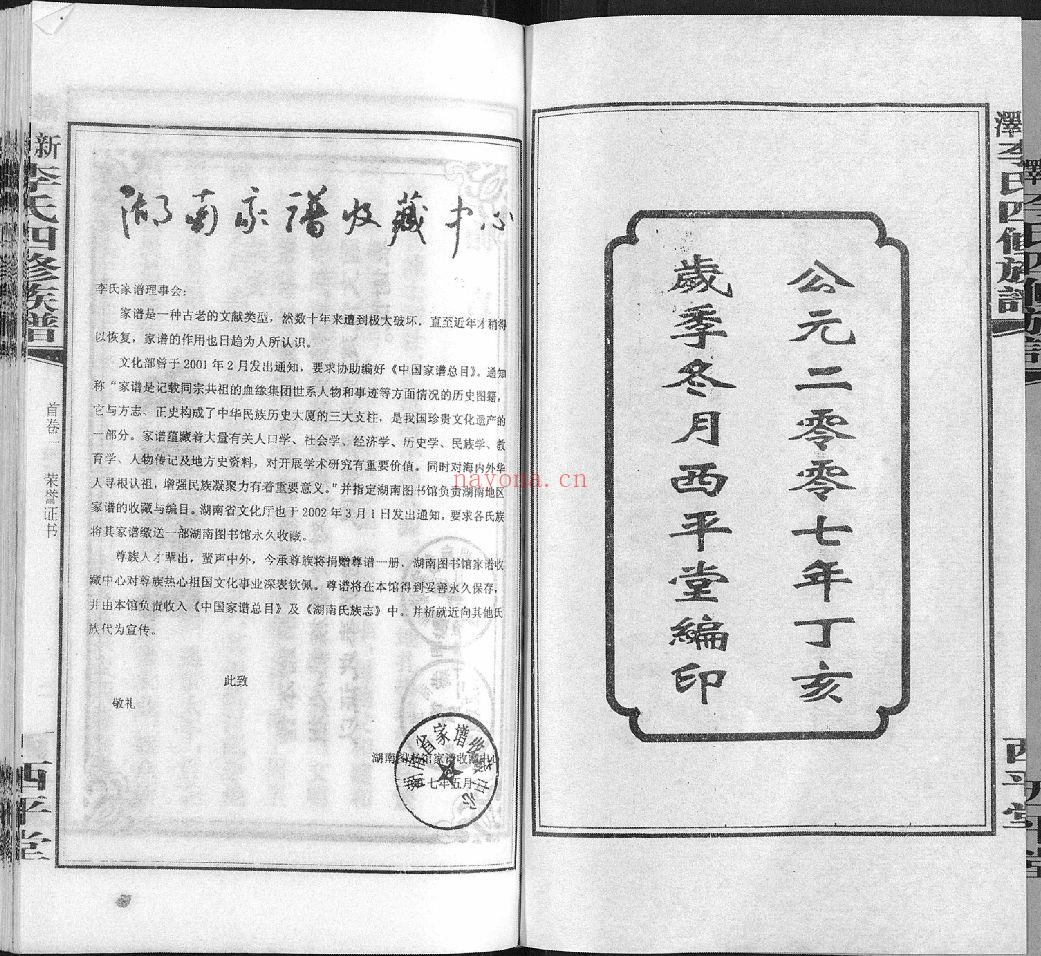 公元二零零七年丁亥
歲季冬月西平堂編印
澤李氏四修族譜
西平堂
湖南家谱收藏中心
李氏家谱理事会:
家谱是一种古老的文献类型，然数十年来遭到极大破坏，直至近年才稍得
以恢复，家谱的作用也日趋为人所认识。
文化部曾于2001年2月发出通知，要求协助编好《中国家谱总目》。通知
称“家谱是记载同宗共祖的血缘集团世系人物和事迹等方面情况的历史图籍，
它与方志、正史构成了中华民族历史大厦的三大支柱，是我国珍贵文化遗产的
一部分。家谱蕴藏着大量有关人口学、社会学、经济学、历史学、民族学、教
育学、人物传记及地方史资料，对开展学术研究有重要价值。同时对海内外华
人寻根认祖，增强民族凝聚力有着重要意义。”并指定湖南图书馆负责湖南地区
家谱的收藏与编目。湖南省文化厅也于2002年3月1日发出通知，要求各氏族
将其家谱缴送一部湖南图书馆永久收藏。
尊族人才辈出，蜚声中外，今承尊族将捐赠尊谱一册，湖南图书馆家谱收
藏中心对尊族热心祖国文化事业深表钦佩。尊谱将在本馆得到妥善永久保存，
并由本馆负责收入《中国家谱总目》及《湖南氏族志》中。并祈就近向其他氏
族代为宣传。
此致
敬礼
湖南图书馆家谱收藏中心
七年五月
湖南省家谱收藏中心
新
李氏四修族谱
首卷
荣誉证书
西平堂
nayona.cn